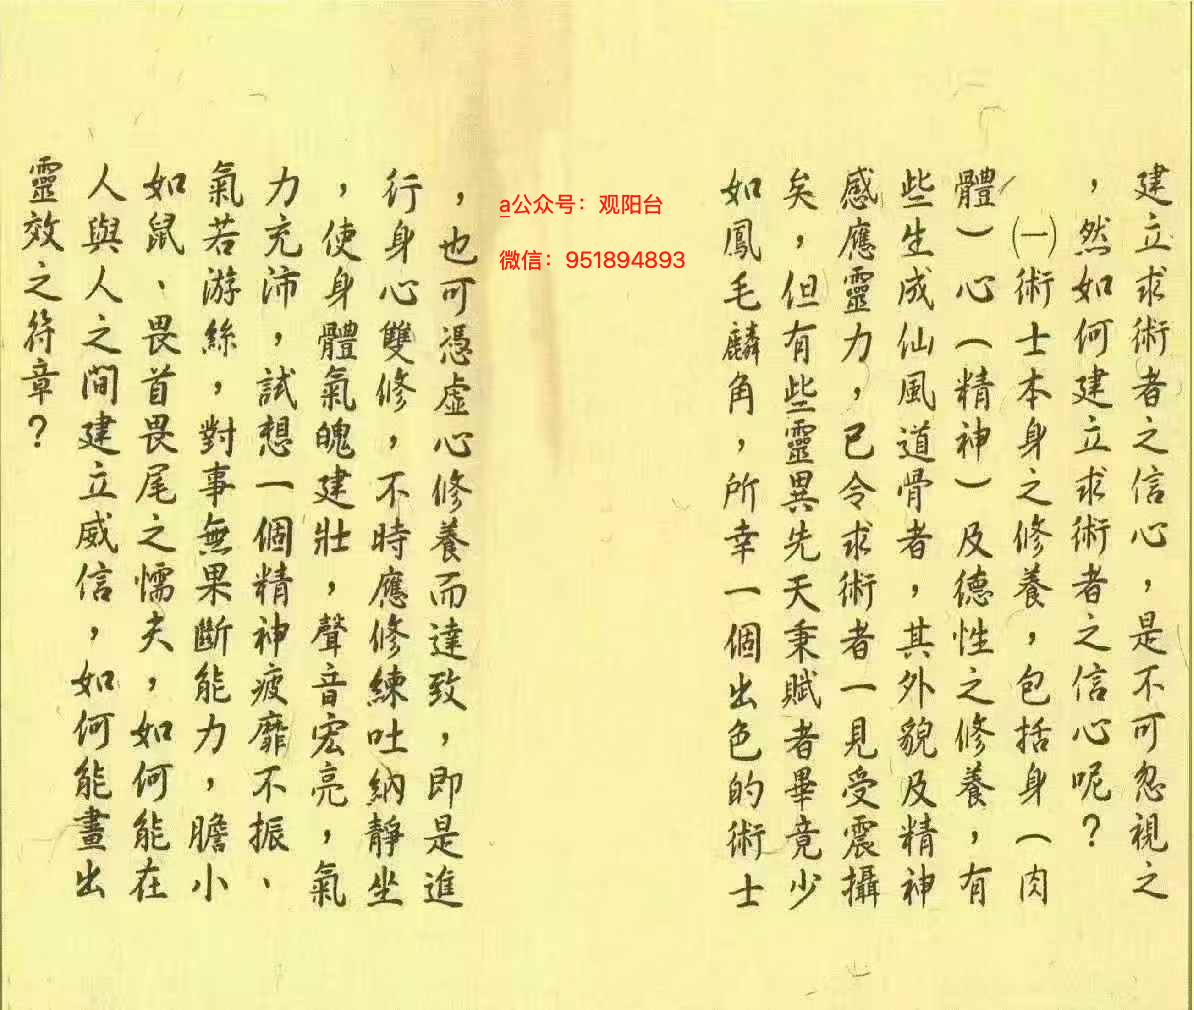 建立求術者之信心，是不可忽視之
，然如何建立求術者之信心呢？
㈠術士本身之修養，包括身（肉
體）心（精神）及德性之修養，有
些生成仙風道骨者，其外貌及精神
感應靈力，已令求術者一見受震攝
矣，但有些靈異先天秉賦者畢竟少
如鳳毛麟角，所幸一個出色的術士
a公众号：观阳台
微信：951894893
，也可憑虛心修養而達致，即是進
行身心雙修，不時應修練吐納靜坐
，使身體氣魄建壯，聲音宏亮，氣
力充沛，試想一個精神疲靡不振、
氣若游絲，對事無果斷能力，膽小
如鼠、畏首畏尾之懦夫，如何能在
人與人之間建立威信，如何能畫出
靈效之符章？